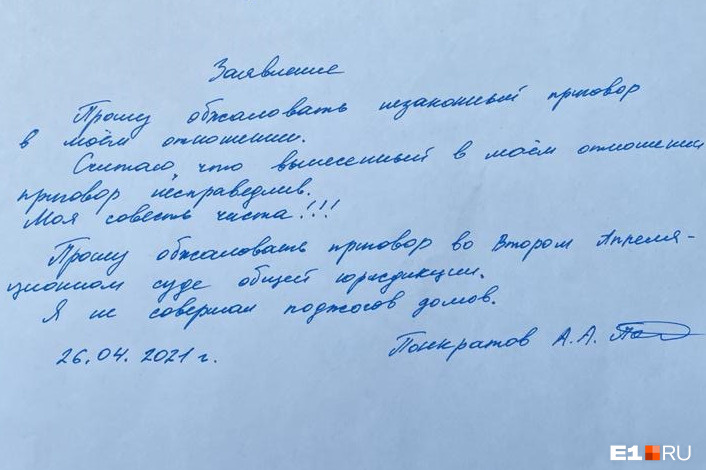 Заявление
Прошу обжаловать незаконный приговор
в моём отношении.
Считаю, что вынесенный в моём отношении
приговор несправедлив.
Моя совесть чиста!!!
Прошу обжаловать приговор во Втором Апелля-
ционном суде общей юрисдикции.
Я не совершал поджогов домов.
26.04.2021 г.
Панкратов А.А.
E1.RU